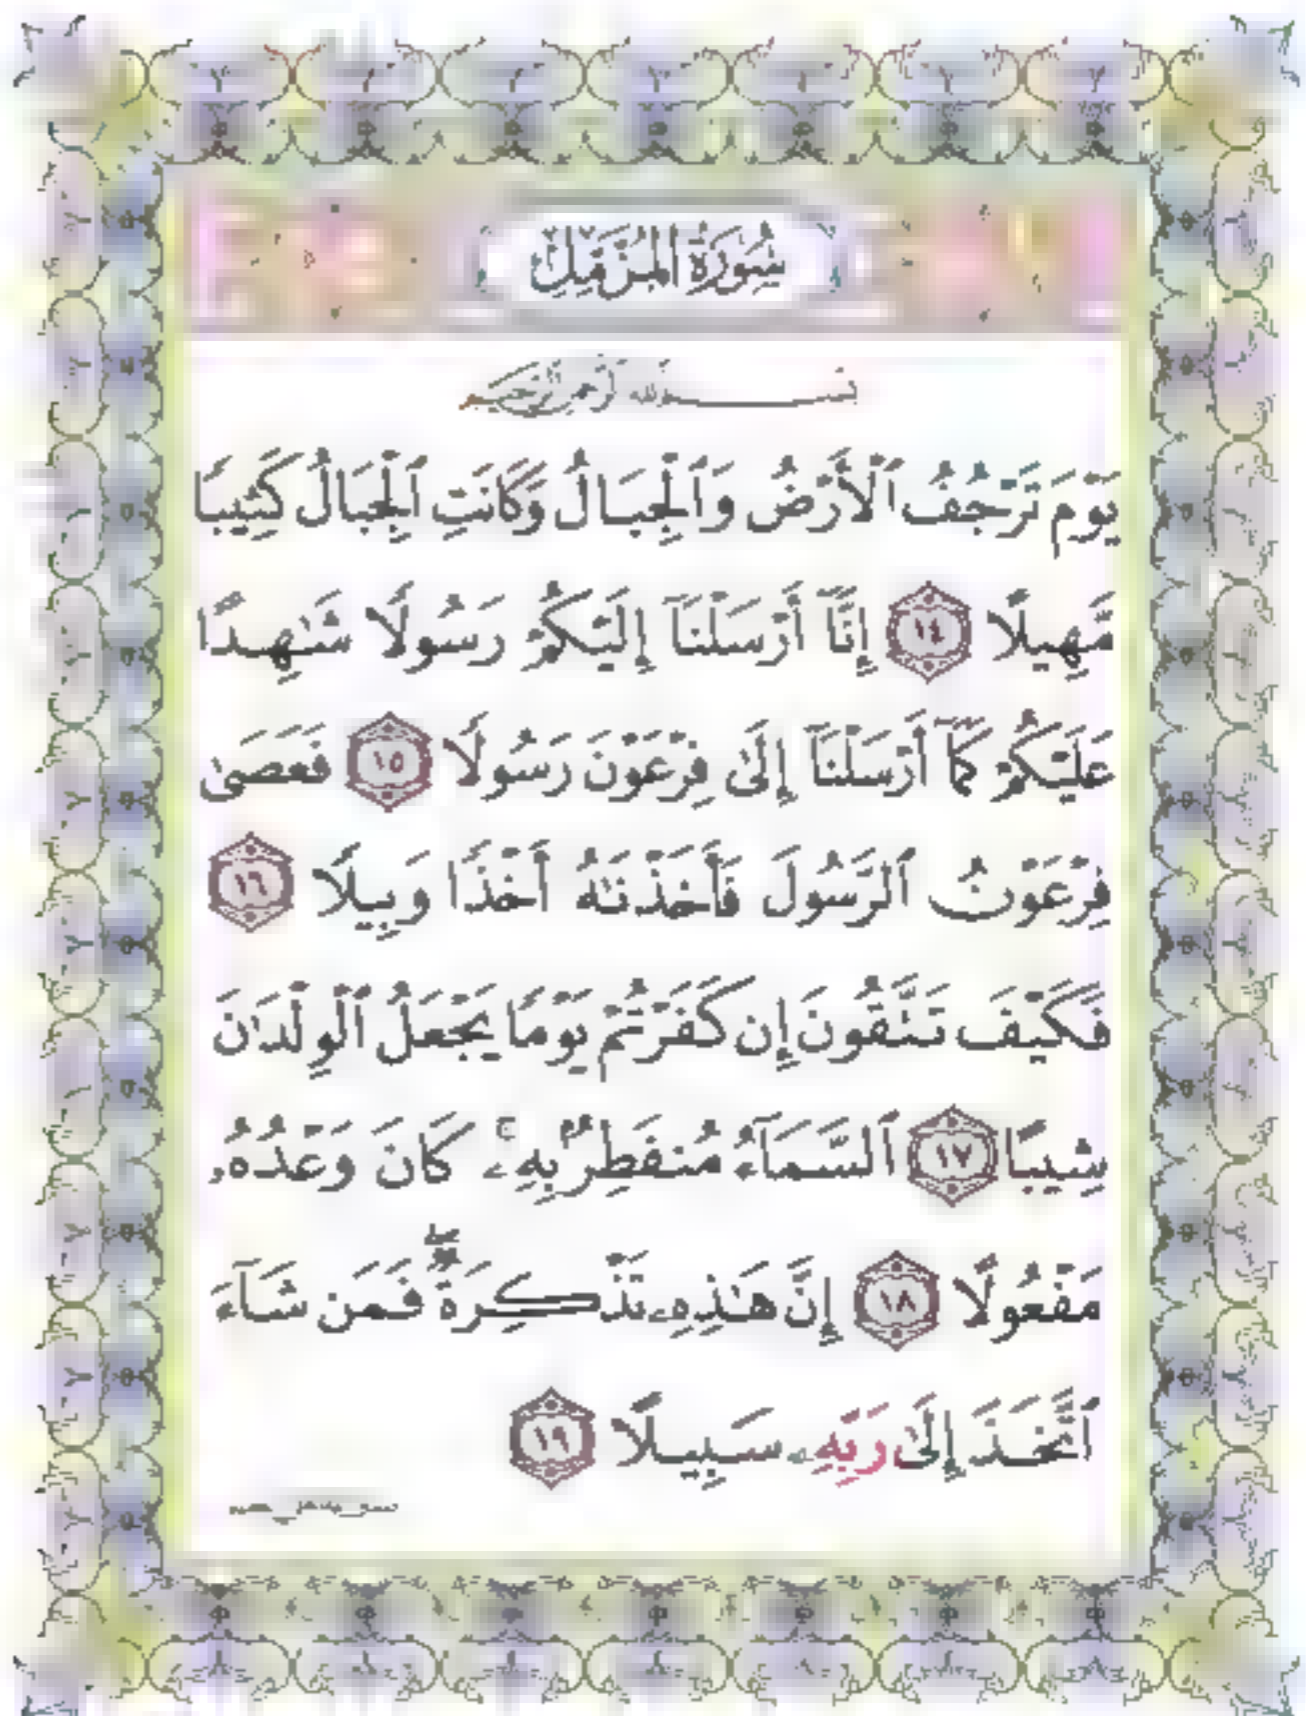 سُورَةُ المُزَّمِّلِ
بِسْمِ اللَّهِ الرَّحْمَٰنِ الرَّحِيمِ
يَوْمَ تَرْجُفُ ٱلْأَرْضُ وَٱلْجِبَالُ وَكَانَتِ ٱلْجِبَالُ كَثِيبًا
مَّهِيلًا ١٤ إِنَّآ أَرْسَلْنَآ إِلَيْكُمْ رَسُولًا شَٰهِدًا
عَلَيْكُمْ كَمَآ أَرْسَلْنَآ إِلَىٰ فِرْعَوْنَ رَسُولًا ١٥ فَعَصَىٰ
فِرْعَوْنُ ٱلرَّسُولَ فَأَخَذْنَٰهُ أَخْذًا وَبِيلًا ١٦
فَكَيْفَ تَتَّقُونَ إِن كَفَرْتُمْ يَوْمًا يَجْعَلُ ٱلْوِلْدَٰنَ
شِيبًا ١٧ ٱلسَّمَآءُ مُنفَطِرٌۢ بِهِۦ ۚ كَانَ وَعْدُهُۥ
مَفْعُولًا ١٨ إِنَّ هَٰذِهِۦ تَذْكِرَةٌ ۖ فَمَن شَآءَ
ٱتَّخَذَ إِلَىٰ رَبِّهِۦ سَبِيلًا ١٩